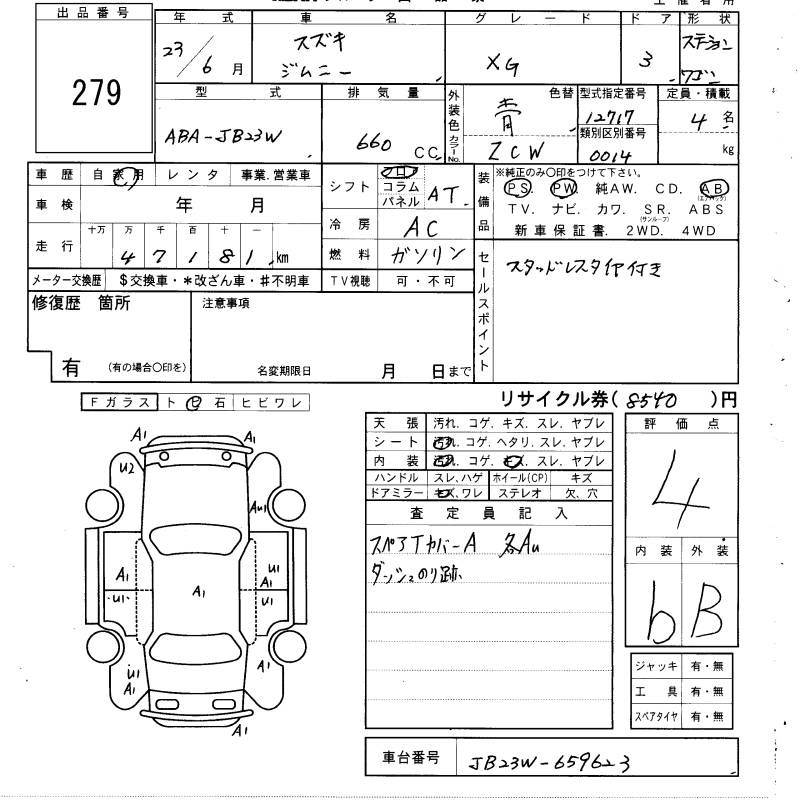 出品番号
279
年式 車名 グレード ドア 形状
23/6月 スズキ ジムニー XG 3 ステーションワゴン
型式 排気量 外装色 カラーNo. 色替 型式指定番号 定員・積載
ABA-JB23W 660 CC 青 12717 4名
ZCW 類別区別番号 0014 kg
車歴 自家用 レンタ 事業.営業車
車検 年 月
走行 十万 万 千 百 十 一
4 7 1 8 1 km
メーター交換歴 $交換車・*改ざん車・#不明車
シフト フロア コラム パネル AT
冷房 AC
燃料 ガソリン
TV視聴 可・不可
装備品
※純正のみ〇印をつけて下さい。
PS. PW. 純AW. CD. AB(エアバック)
TV. ナビ. カワ. SR.(サンルーフ) ABS
新車保証書. 2WD. 4WD
セールスポイント
スタッドレスタイヤ付き
修復歴 箇所
有 (有の場合〇印を)
注意事項
名変期限日 月 日まで
リサイクル券(8540)円
Fガラス ト 石 ヒビワレ
天張 汚れ. コゲ. キズ. スレ. ヤブレ
シート 汚れ. コゲ. ヘタリ. スレ. ヤブレ
内装 汚れ. コゲ. キズ. スレ. ヤブレ
ハンドル スレ、ハゲ ホイール(CP) キズ
ドアミラー キズ、ワレ ステレオ 欠、穴
査定員記入
スペアTカバーA 各Au
ダッシュのり跡
評価点
4
内装 外装
b B
ジャッキ 有・無
工具 有・無
スペアタイヤ 有・無
車台番号 JB23W-659623
A1 A1
U2
AU1
A1 U1
A1
U1 A1 U1
U1 A1
A1
A1